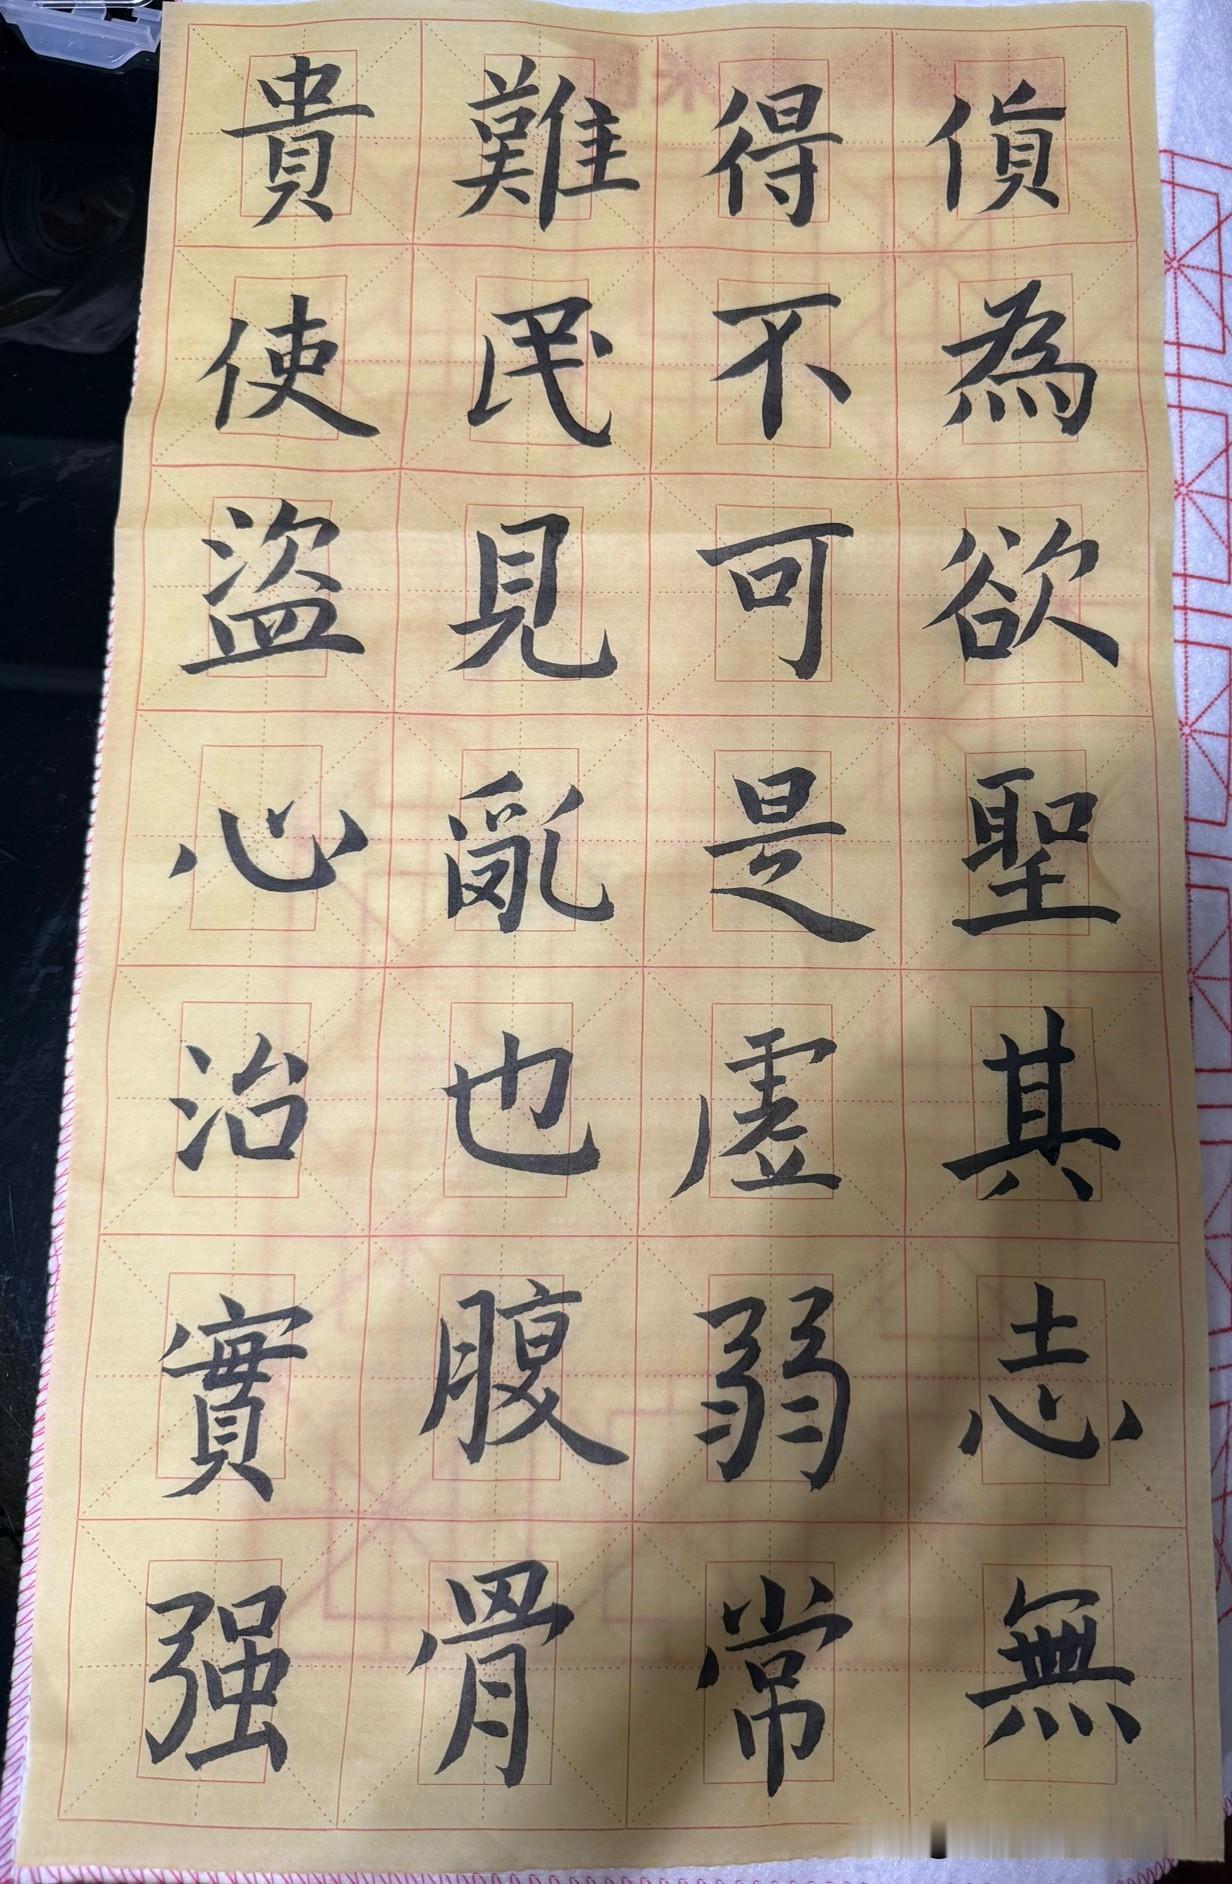 貴難得貨
使民不為
盜見可欲
心亂是聖
治也虛其
實腹弱志
强骨常無